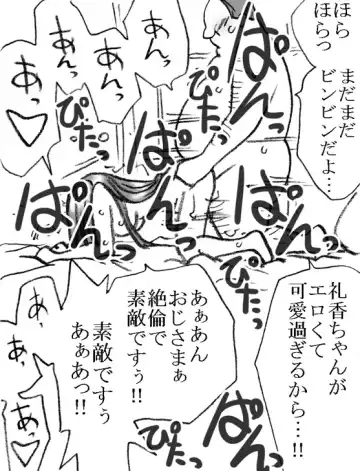 ほら
ほらっ
まだまだ
ビンビンだよ…
あんっ
あんっ
あんっ
あっ♡
ぱんっ
ぴたっ
ぱんっ
ぴたっ
ぱんっ
ぱんっ
ぴたっ
礼香ちゃんが
エロくて
可愛過ぎるから…!!
あぁあん
おじさまぁ
絶倫で
素敵ですぅ!!
素敵ですぅ
あぁあっ!!
ぴたっ
あっ
あんっ
あっ♡